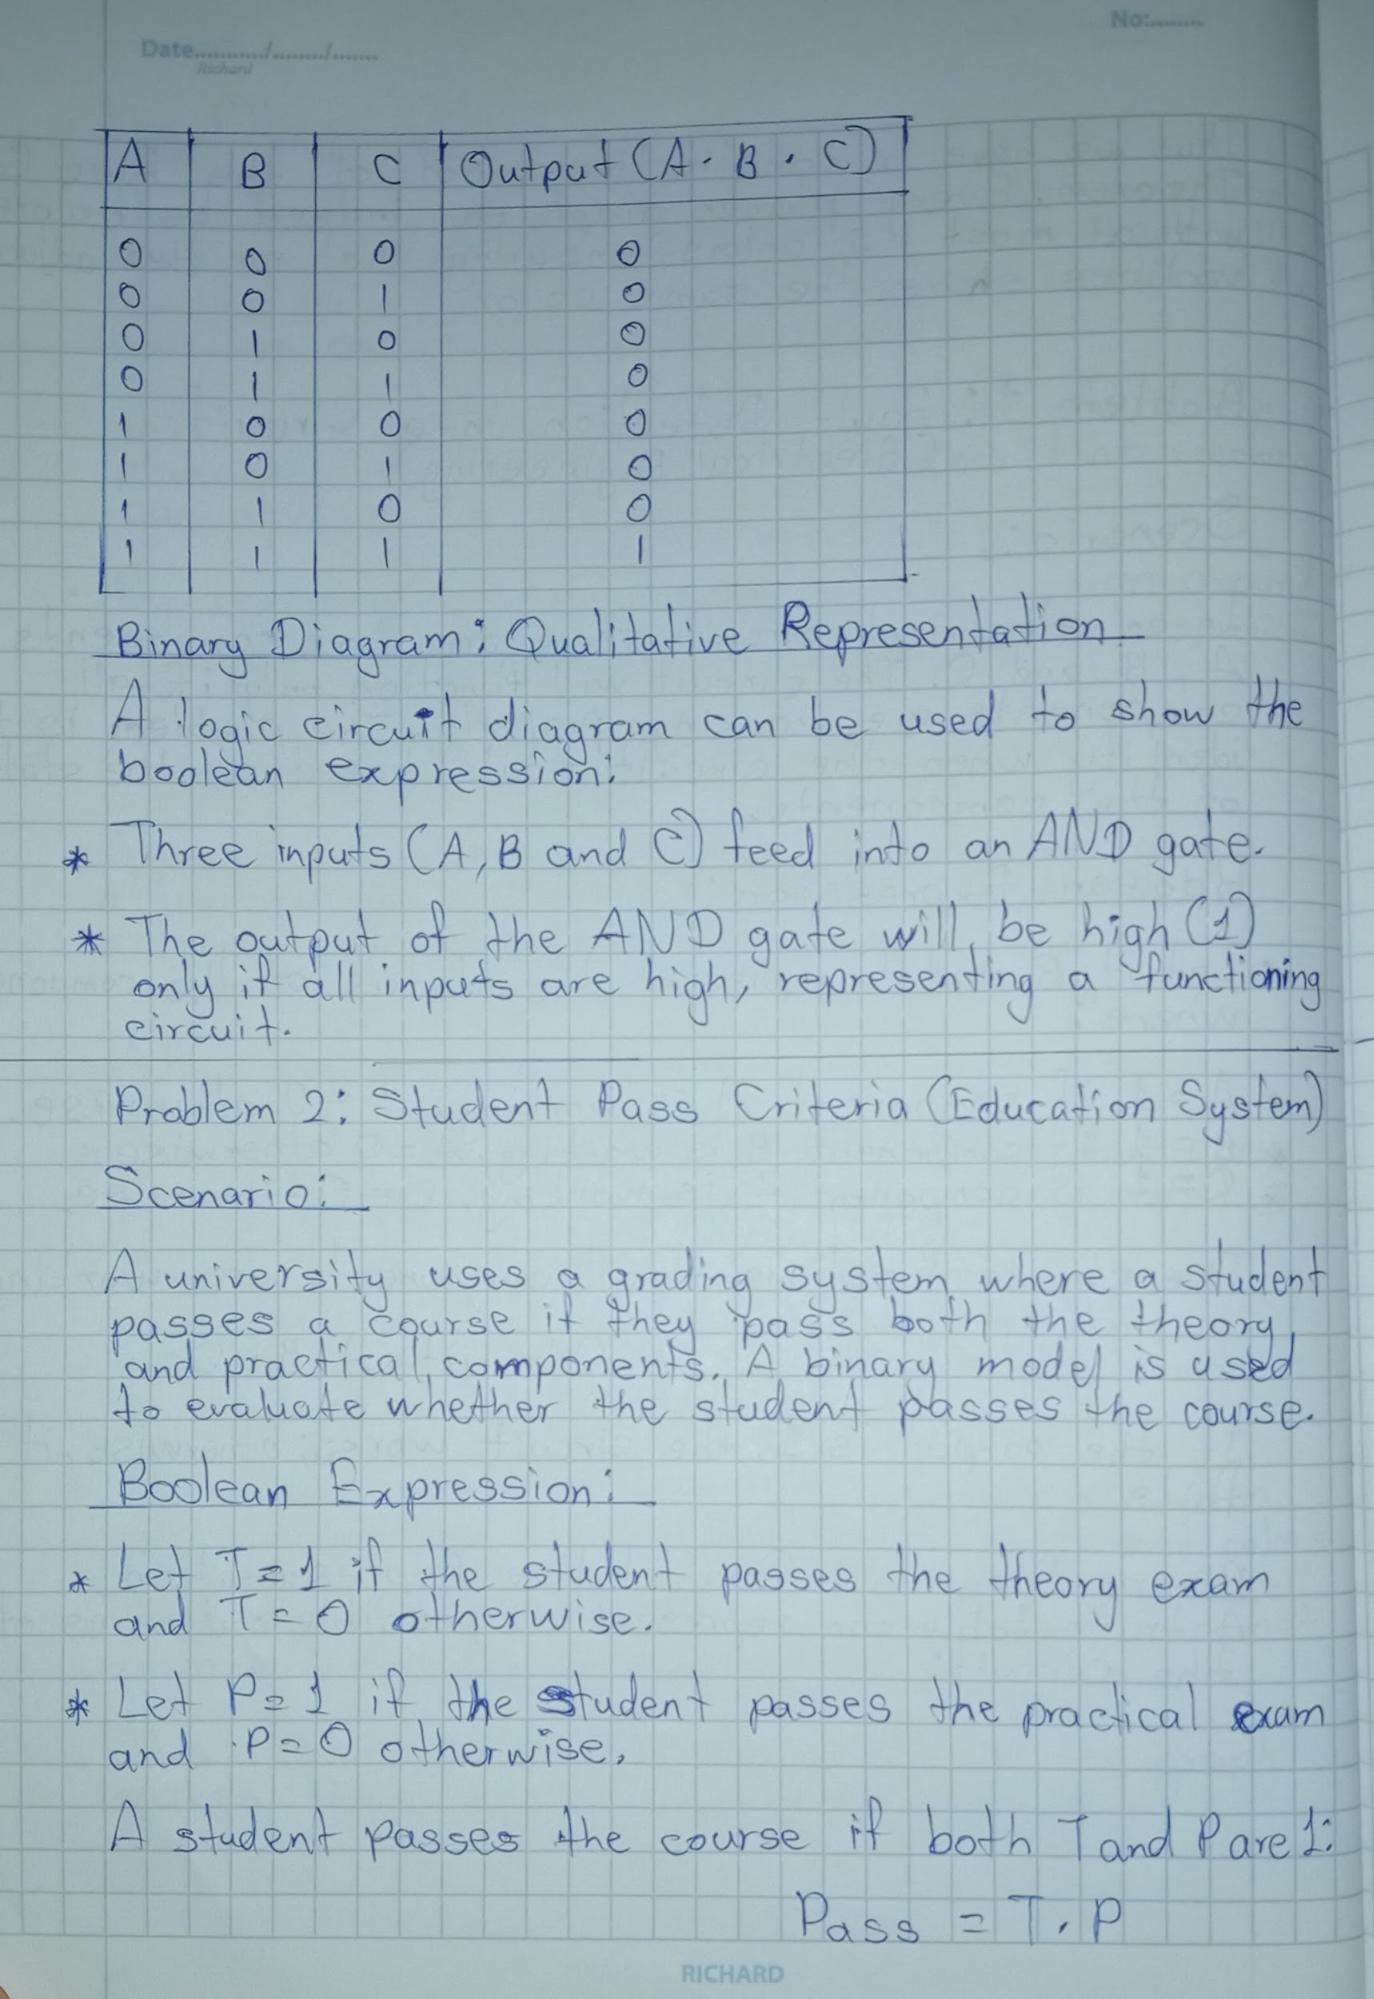 No:........
Date.........../........./.......
Richard
A B C Output (A · B · C)
0 0 0 0
0 0 1 0
0 1 0 0
0 1 1 0
1 0 0 0
1 0 1 0
1 1 0 0
1 1 1 1
Binary Diagram: Qualitative Representation
A logic circuit diagram can be used to show the
boolean expression:
* Three inputs (A, B and C) feed into an AND gate.
* The output of the AND gate will be high (1)
only if all inputs are high, representing a functioning
circuit.
Problem 2: Student Pass Criteria (Education System)
Scenario:
A university uses a grading system where a student
passes a course if they pass both the theory
and practical components. A binary model is used
to evaluate whether the student passes the course.
Boolean Expression:
* Let T=1 if the student passes the theory exam
and T=0 otherwise.
* Let P=1 if the student passes the practical exam
and P=0 otherwise.
A student passes the course if both T and P are 1:
Pass = T · P
RICHARD